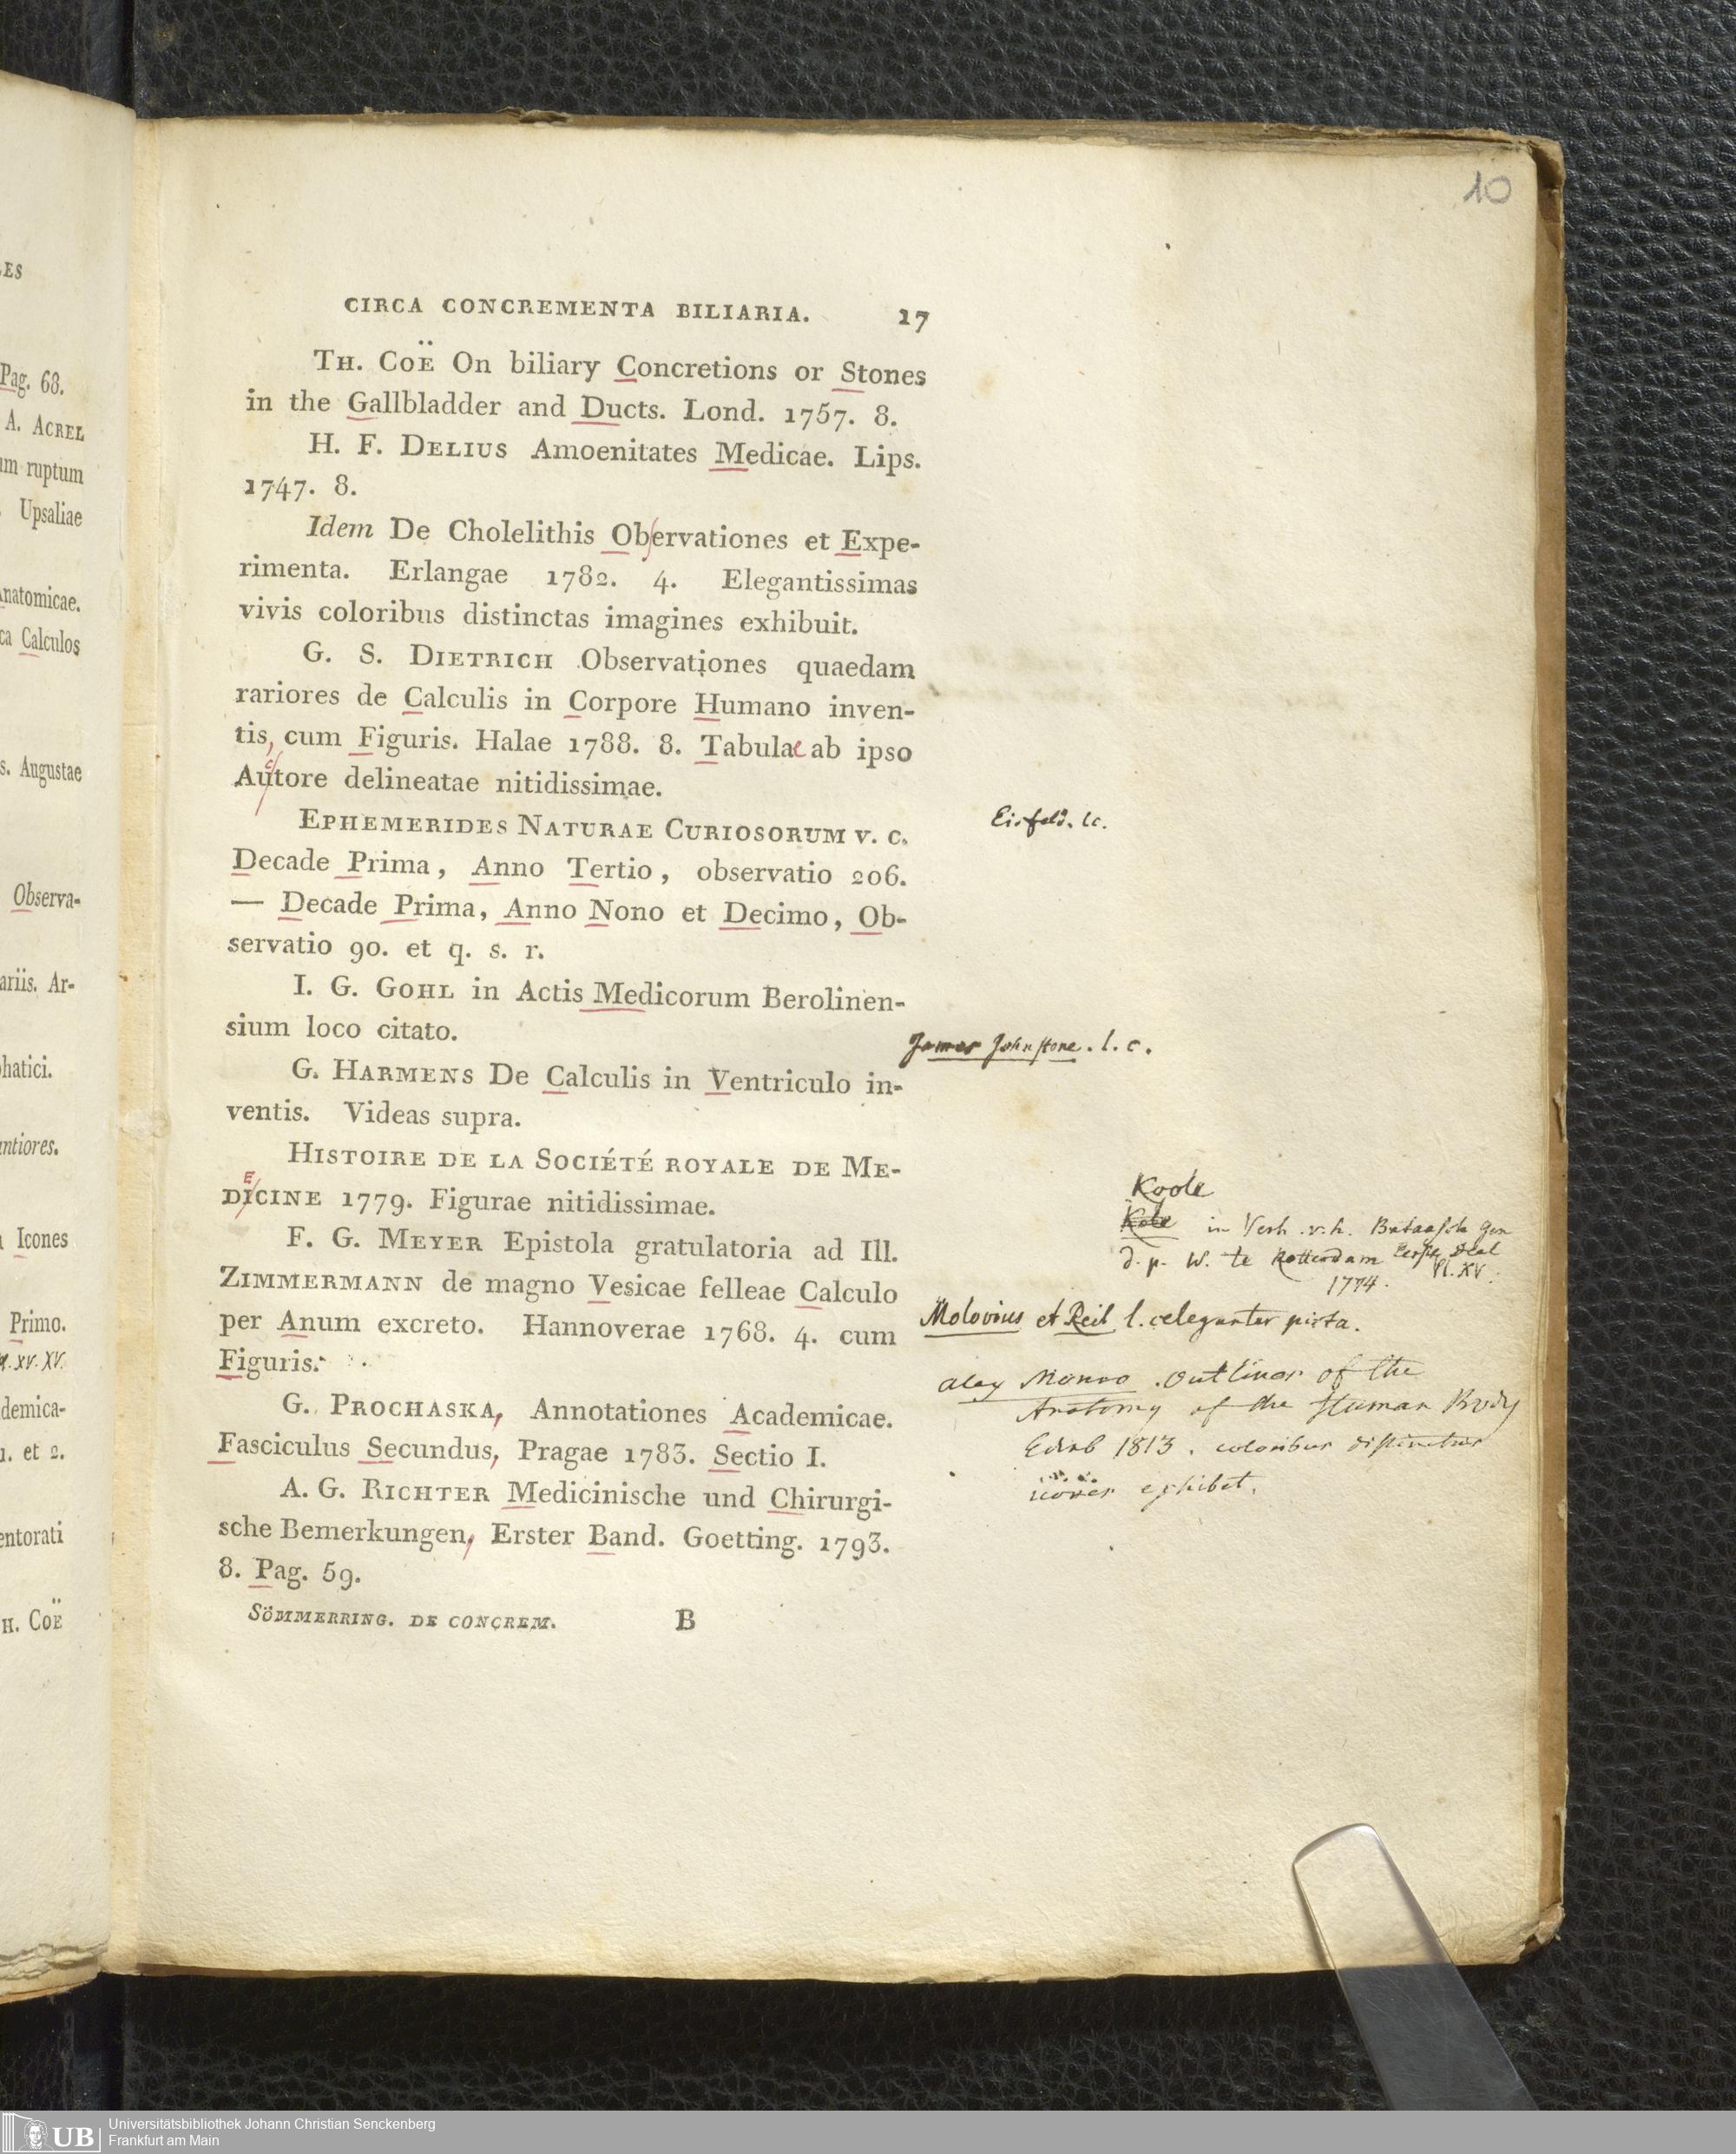 ES
Pag. 68.
A. ACREL
um ruptum
Upsaliae
Anatomicae.
ca Calculos
s. Augustae
Observa-
ariis. Ar-
phatici.
antiores.
Icones
Primo.
XV. XV.
demica-
1. et 2.
entorati
H. COË
10
CIRCA CONCREMENTA BILIARIA. 17
TH. COË On biliary Concretions or Stones
in the Gallbladder and Ducts. Lond. 1757. 8.
H. F. DELIUS Amoenitates Medicae. Lips.
1747. 8.
Idem De Cholelithis Observationes et Expe-
rimenta. Erlangae 1782. 4. Elegantissimas
vivis coloribus distinctas imagines exhibuit.
G. S. DIETRICH Observationes quaedam
rariores de Calculis in Corpore Humano inven-
tis, cum Figuris. Halae 1788. 8. Tabulae ab ipso
Autore delineatae nitidissimae.
c
EPHEMERIDES NATURAE CURIOSORUM V. C.
Decade Prima, Anno Tertio, observatio 206.
— Decade Prima, Anno Nono et Decimo, Ob-
servatio 90. et q. s. r.
I. G. GOHL in Actis Medicorum Berolinen-
sium loco citato.
G. HARMENS De Calculis in Ventriculo in-
ventis. Videas supra.
HISTOIRE DE LA SOCIÉTÉ ROYALE DE ME-
E
DICINE 1779. Figurae nitidissimae.
F. G. MEYER Epistola gratulatoria ad Ill.
ZIMMERMANN de magno Vesicae felleae Calculo
per Anum excreto. Hannoverae 1768. 4. cum
Figuris.
G. PROCHASKA, Annotationes Academicae.
Fasciculus Secundus, Pragae 1783. Sectio I.
A. G. RICHTER Medicinische und Chirurgi-
sche Bemerkungen, Erster Band. Goetting. 1793.
8. Pag. 59.
SÖMMERRING. DE CONCREM. B
Eisfeld. l c.
James Johnstone. l. c.
Koole
in Verh. v. h. Bataafsch Gen
d. p. W. te Rotterdam Eerste Deel
Pl. XV.
1774.
Molovius et Reil l. c elegantur picta.
Alex Monro . Outlines of the
Anatomy of the Human Body
Edinb 1813. coloribus distinctas
icones exhibet.
UB
Universitätsbibliothek Johann Christian Senckenberg
Frankfurt am Main